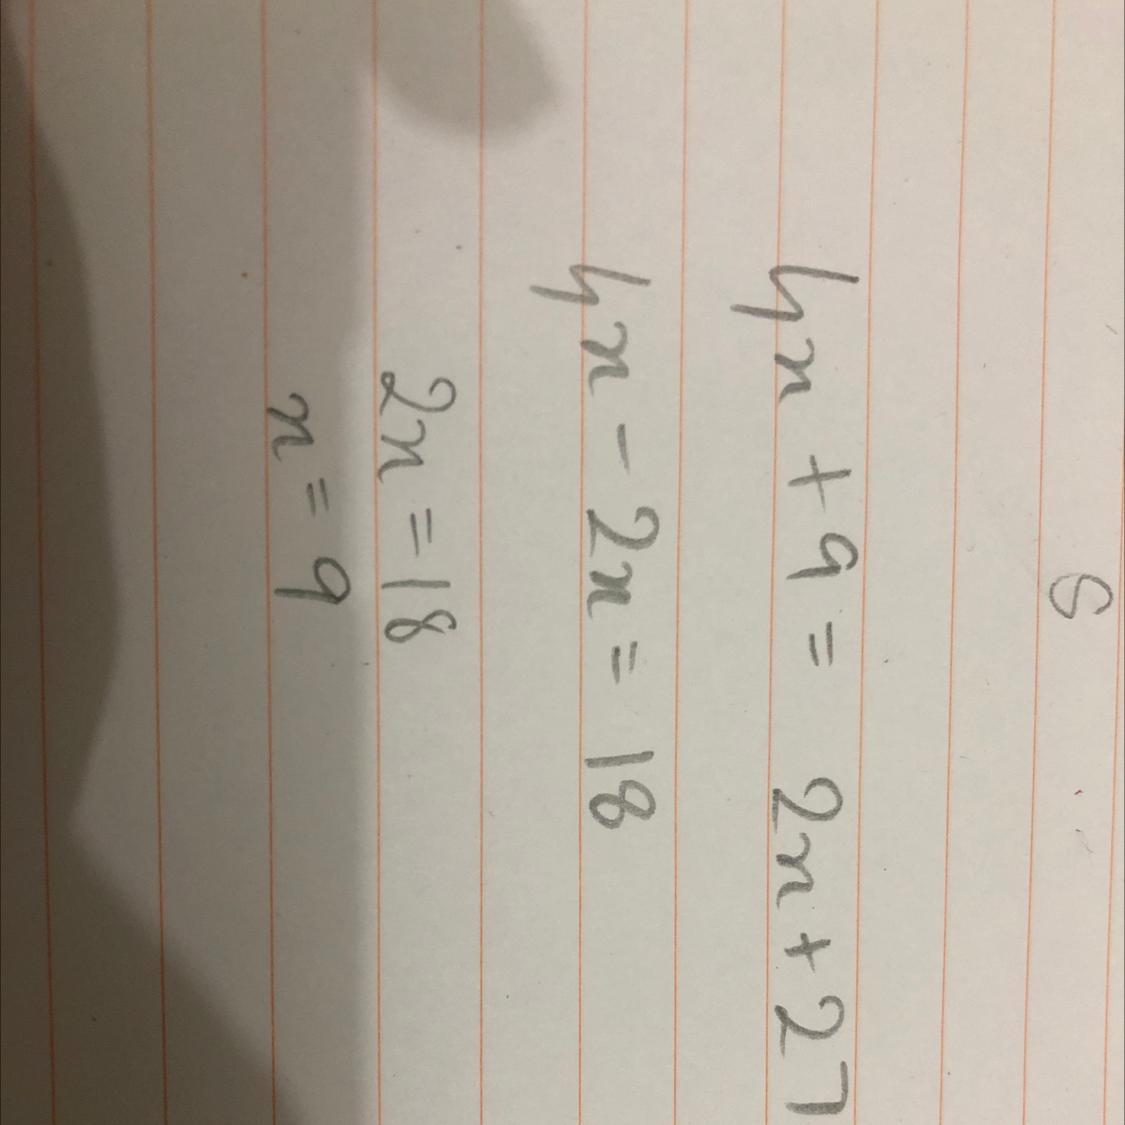 4x + 9 = 2x + 27
4x - 2x = 18
2x = 18
x = 9